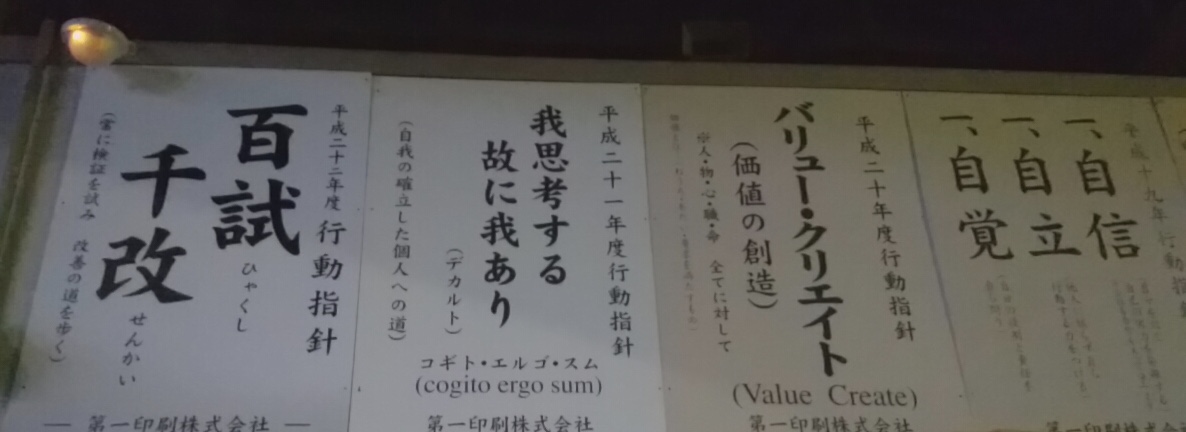 平成二十二年度 行動指針
百試 ひゃくし
千改 せんかい
（常に検証を試み 改善の道を歩く）
― 第一印刷株式会社 ―
平成二十一年度行動指針
我思考する
故に我あり
（デカルト）
（自我の確立した個人への道）
コギト・エルゴ・スム
(cogito ergo sum)
第一印刷株式会社
平成二十年度行動指針
バリュー・クリエイト
（価値の創造）
※人・物・心・職・命 全てに対して
(Value Create)
第一印刷株式会社
平成十九年行動指針
一、自信
一、自立
一、自覚
第一印刷株式会社